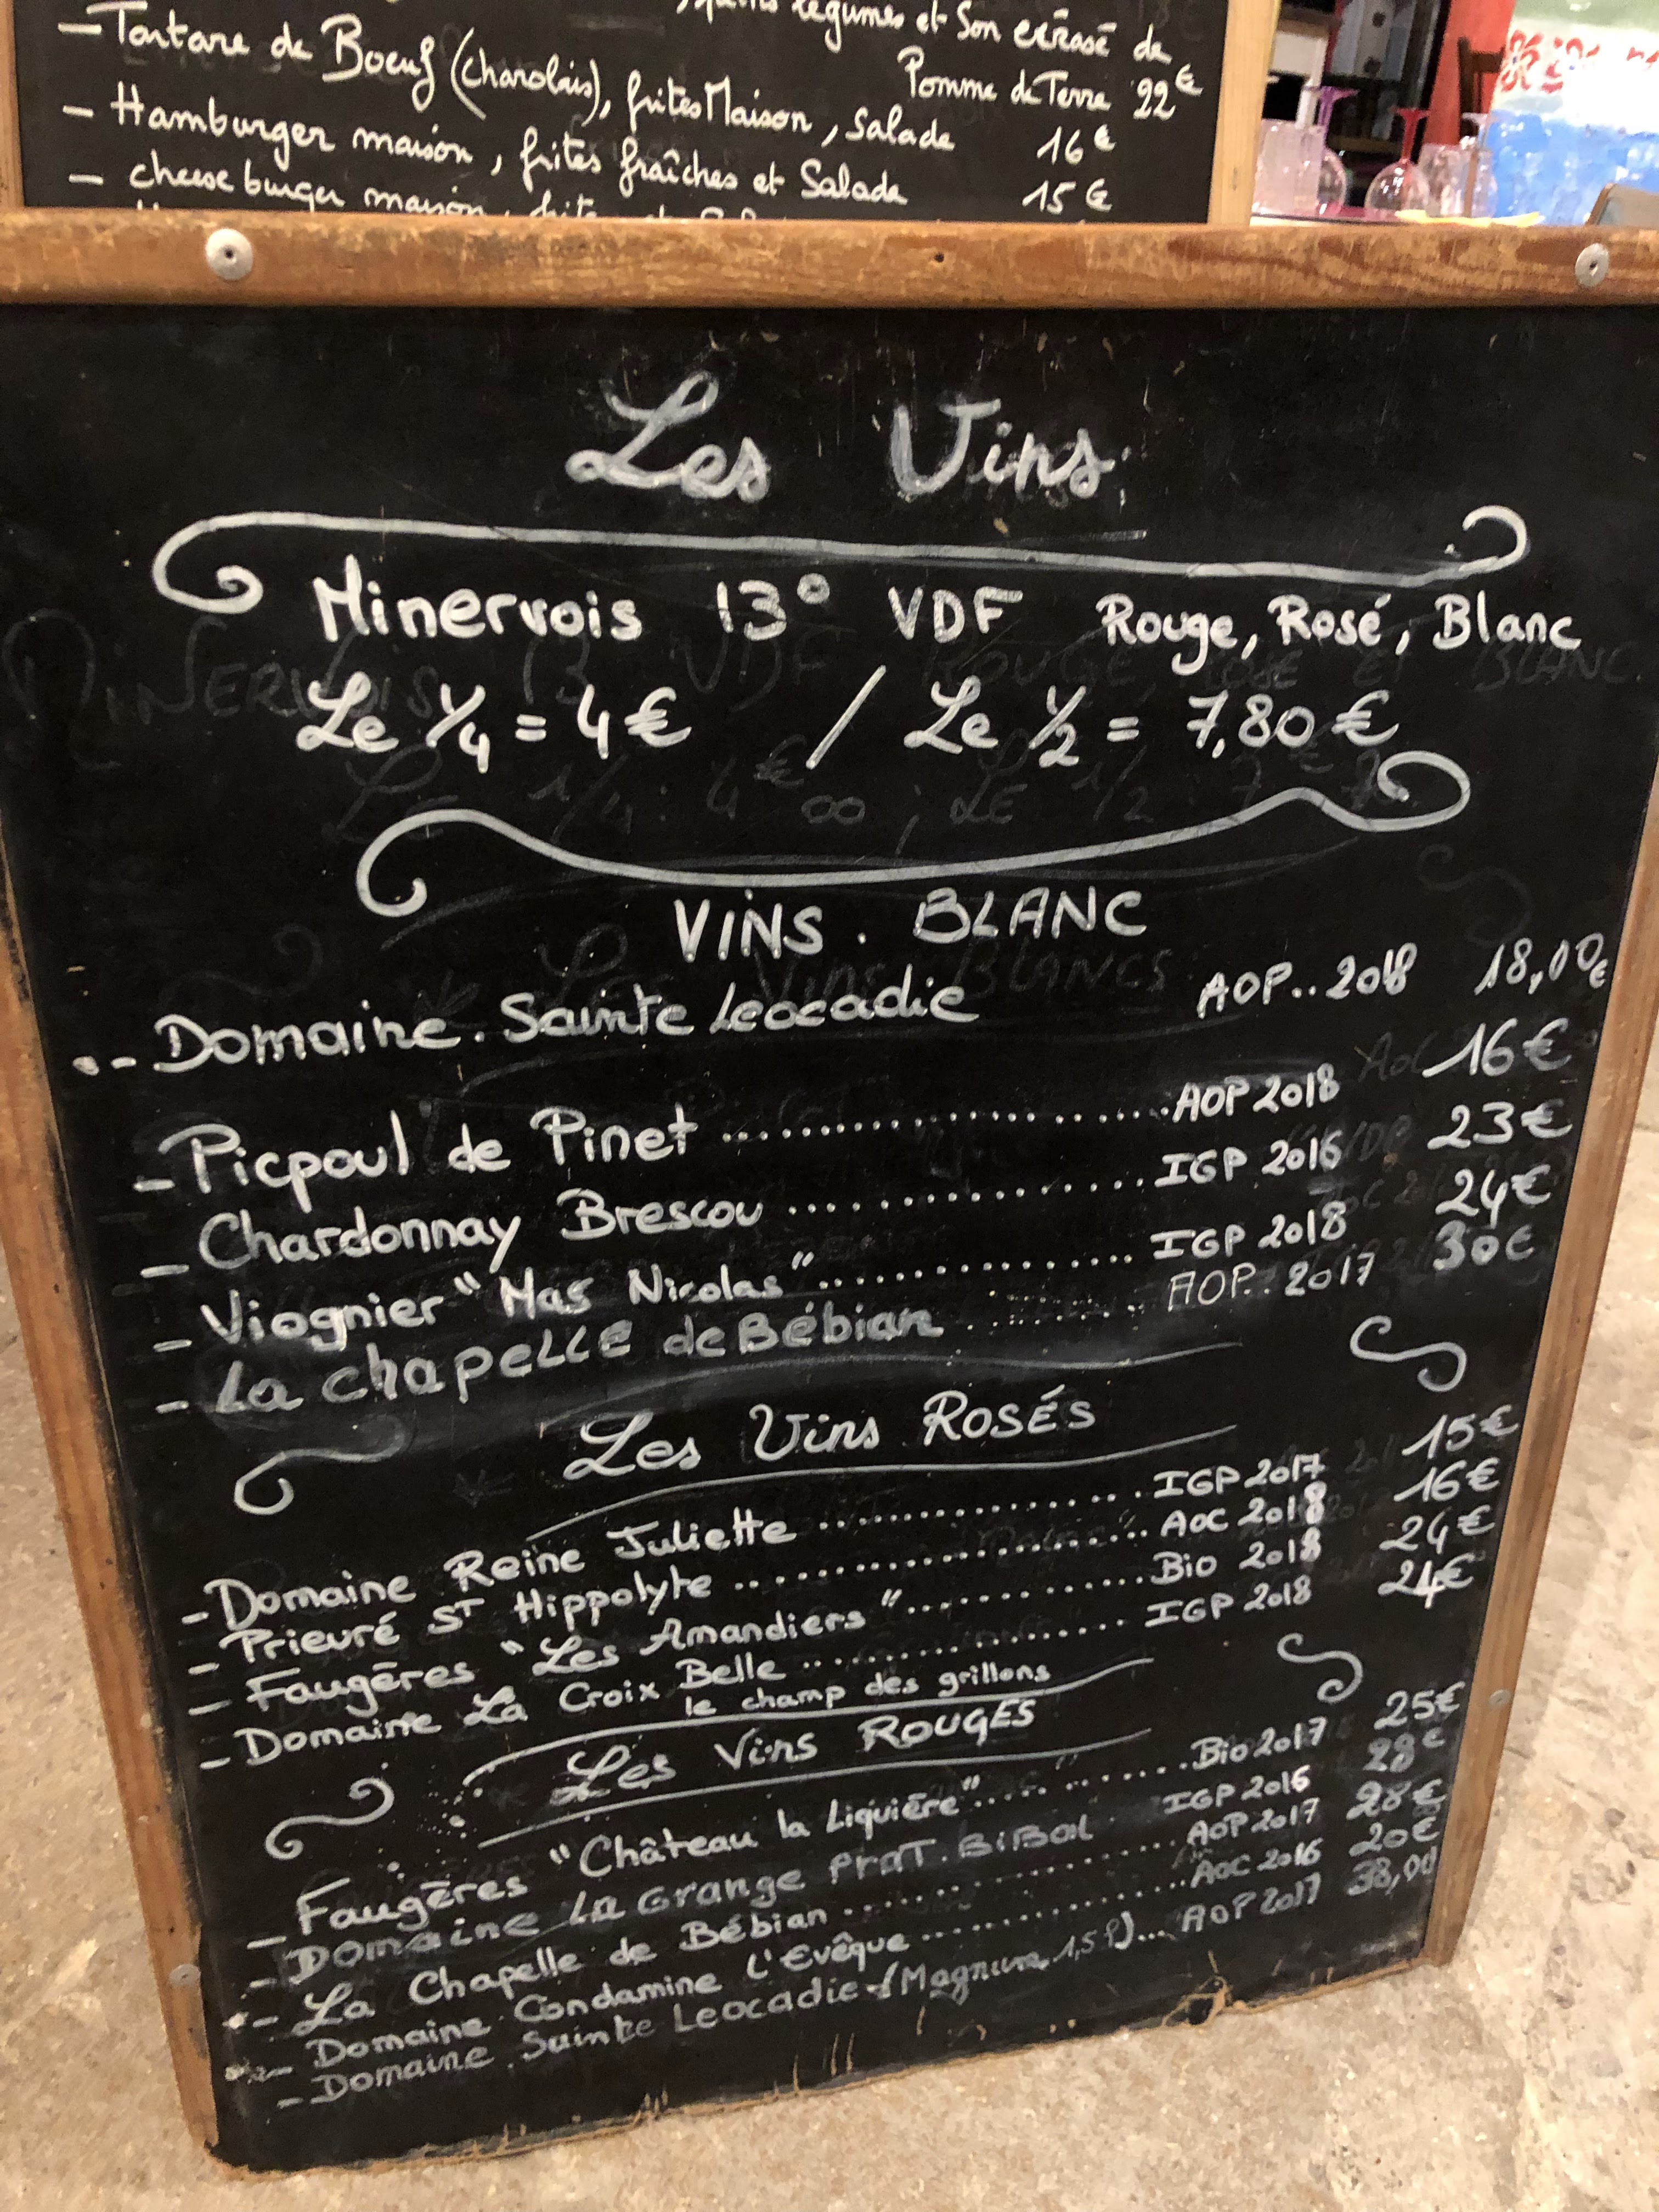 légumes et Son écrasé de
Pomme de Terre 22€
- Tartare de Boeuf (charolais), frites Maison, Salade 16€
- Hamburger maison, frites fraîches et Salade 15€
- cheese burger maison,
Les Vins
Minervois 13° VDF Rouge, Rosé, Blanc
Le 1/4 = 4€ / Le 1/2 = 7,80€
VINS . BLANC
-- Domaine. Sainte Leocadie AOP.. 2018 18,00€
- Picpoul de Pinet ........ AOP 2018 16€
- Chardonnay Brescou ........ IGP 2016 23€
- Viognier "Mas Nicolas" ........ IGP 2018 24€
- La chapelle de Bébian ........ AOP.. 2017 30€
Les Vins ROSÉS
- Domaine Reine Juliette ........ IGP 2017 15€
- Prieuré ST Hippolyte ........ AOC 2018 16€
- Faugēres "Les Amandiers" ........ Bio 2018 24€
- Domaine La Croix Belle ........ IGP 2018 24€
le champ des grillons
Les Vins ROUGES
- Faugēres "Château la Liquiēre" ........ Bio 2017 25€
- Domaine La Grange Prat. BiBal IGP 2016 28€
- La Chapelle de Bébian ........ AOP 2017 28€
- Domaine Condamine L'Evêque ........ AOC 2016 20€
- Domaine. Sainte Leocadie (Magnum 1,5 l)... AOP 2017 38,00